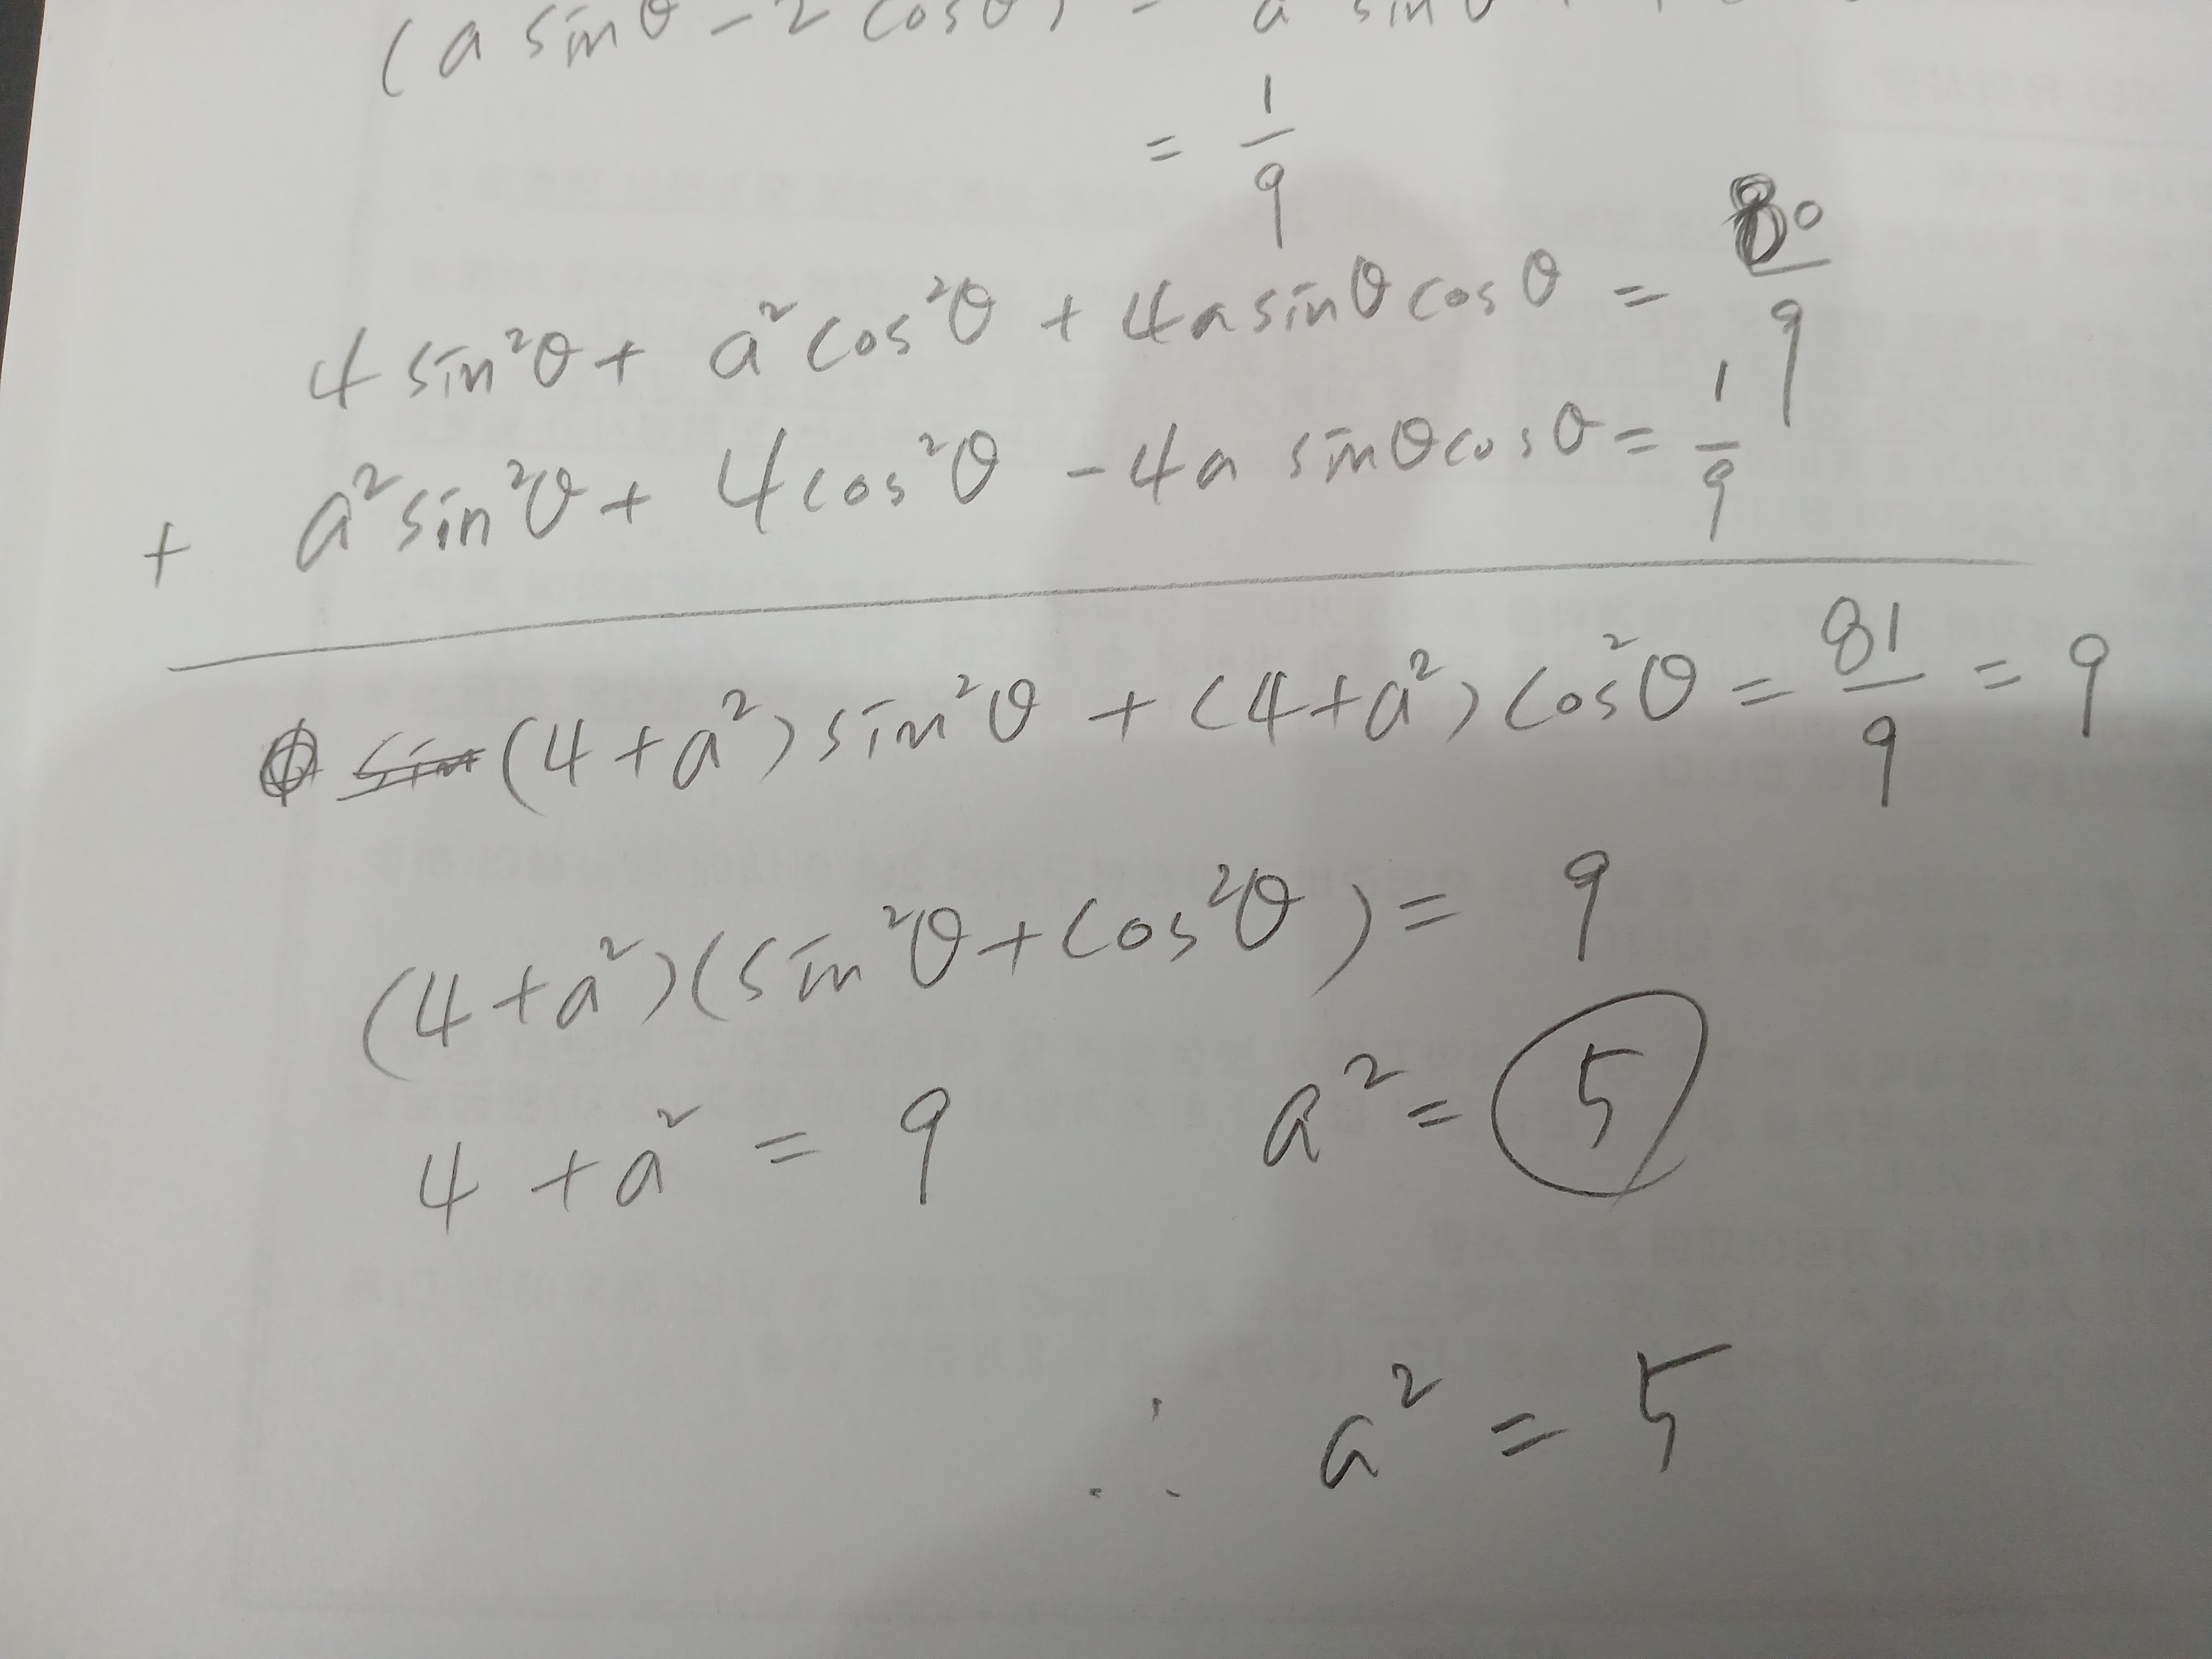 (a sinθ - 2 cosθ) = a sinθ
= 1/9
4 sin²θ + a² cos²θ + 4a sinθ cosθ = 80/9
+ a² sin²θ + 4 cos²θ - 4a sinθ cosθ = 1/9
(4 + a²) sin²θ + (4 + a²) cos²θ = 81/9 = 9
(4 + a²)(sin²θ + cos²θ) = 9
4 + a² = 9 a² = 5
∴ a² = 5